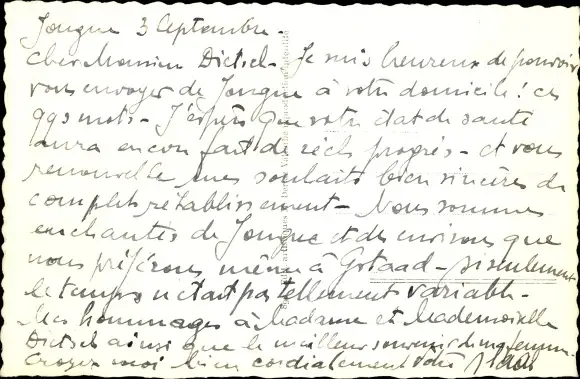 Jougne 3 Septembre -
Cher Monsieur Dietsch - Je suis heureux de pouvoir
vous envoyer de Jougne à votre domicile ! ces
qqs mots - J'espère que votre état de santé
aura encore fait de réels progrès - et vous
renouvelle mes souhaits bien sincères de
complet rétablissement - Nous sommes
enchantés de Jougne et des environs que
nous préférons même à Gstaad - si seulement
le temps n'était pas tellement variable -
Mes hommages à Madame et Mademoiselle
Dietsch ainsi que le meilleur souvenir de ma femme -
Croyez moi bien cordialement votre